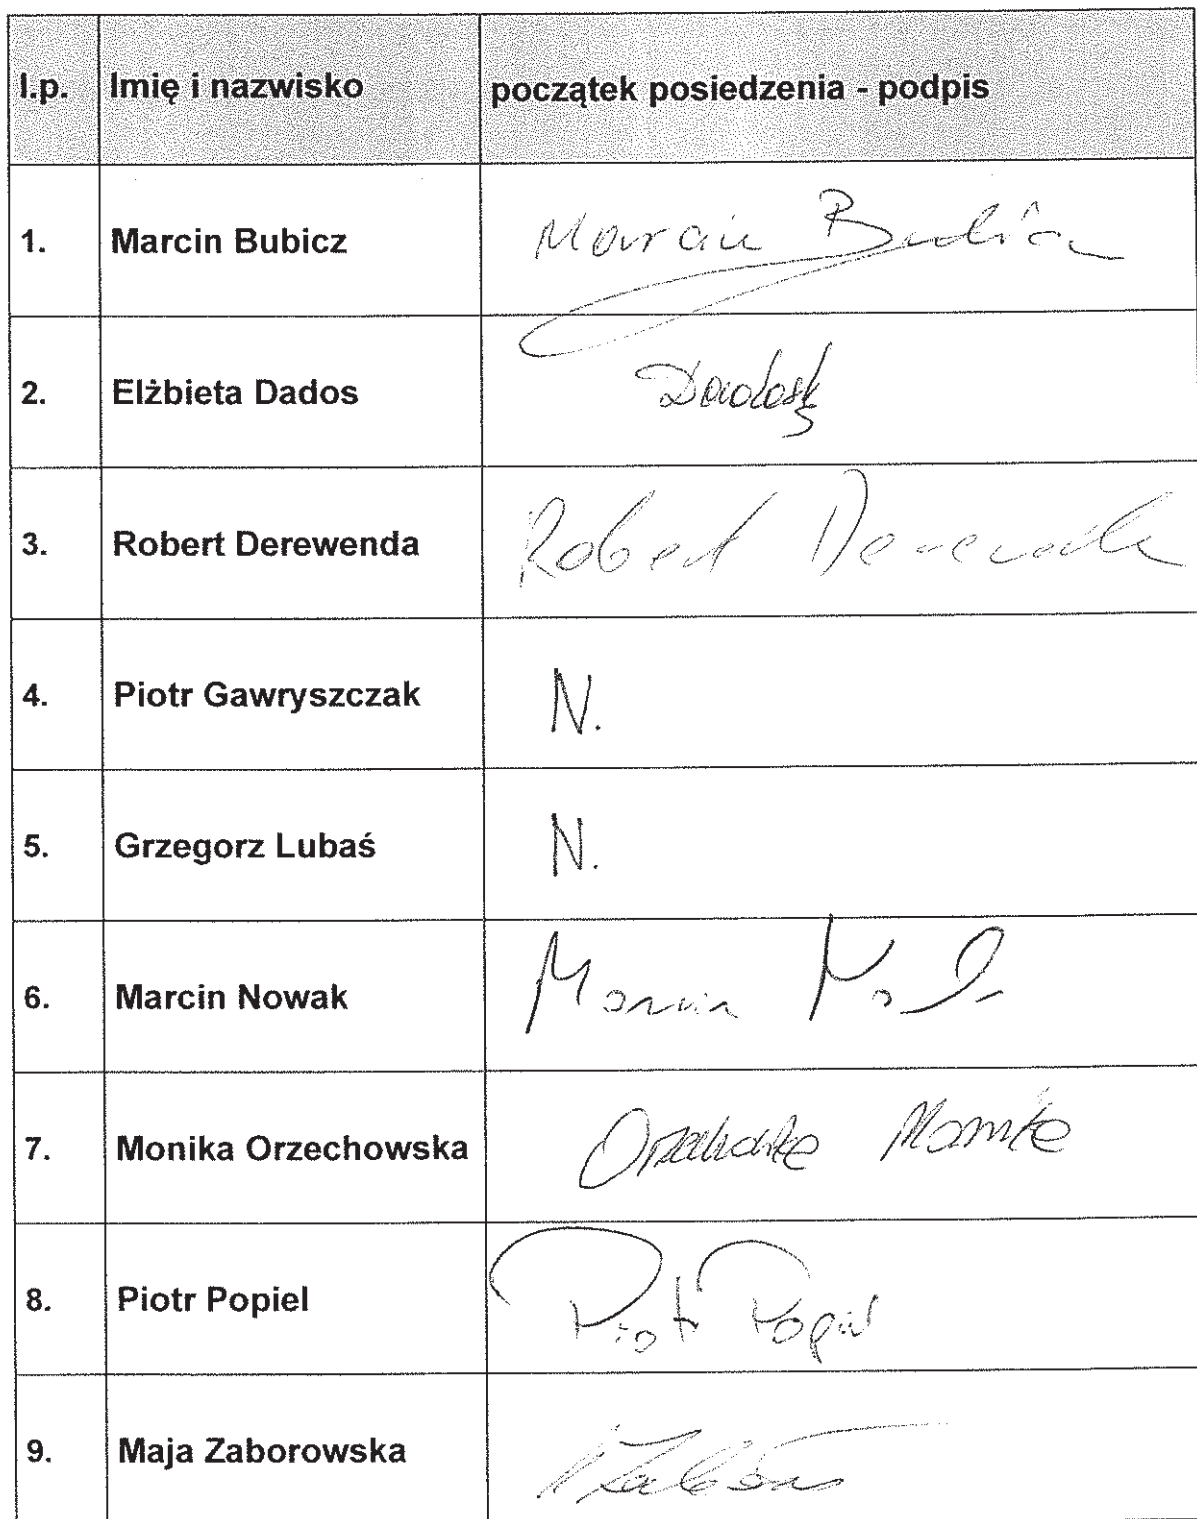 l.p. Imię i nazwisko początek posiedzenia - podpis
1. Marcin Bubicz Marcin Bubicz
2. Elżbieta Dados Dados
3. Robert Derewenda Robert Derewenda
4. Piotr Gawryszczak N.
5. Grzegorz Lubaś N.
6. Marcin Nowak Marcin
7. Monika Orzechowska Orzechowska Monika
8. Piotr Popiel Piotr Popiel
9. Maja Zaborowska